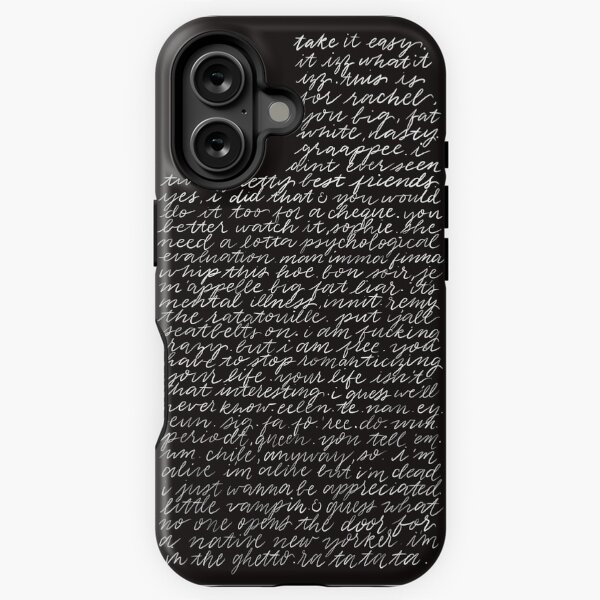 take it easy.
it izz what it
izz. this is
for rachel,
you big, fat
white, nasty.
graappee. i
aint ever seen
two pretty best friends
yes, i did that & you would
do it too for a cheque. you
better watch it, sophie. she
need a lotta psychological
evaluation. man imma finna
whip this hoe. bon soir, je
m'appelle big fat liar. it's
mental illness, innit. remy
the ratatouille. put yall
seatbelts on. i am fucking
crazy but i am free. you
have to stop romanticizing
your life. your life isn't
that interesting. i guess we'll
never know. ecllen. te. nan. ey.
eun. sig fa fo ree. do. wuh
periodt, queen. you tell 'em.
um chile, anyway, so i'm
alive im alive but i'm dead
i just wanna be appreciated
little vampin & guess what
no one opens the door for
a native new yorker im
in the ghetto. ra ta ta ta.